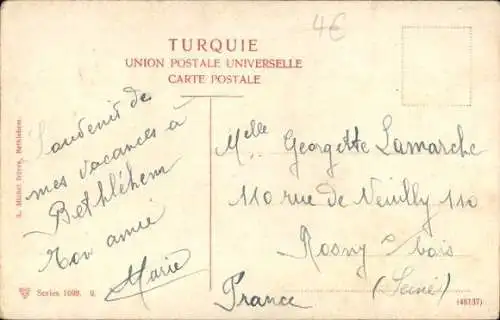 4€
TURQUIE
UNION POSTALE UNIVERSELLE
CARTE POSTALE
Souvenir de
mes vacances à
Bethléhem
Ton amie
Marie
Melle Georgette Lamarche
110 rue de Neuilly 110
Rosny s/bois
(Seine)
France
Michel frères, Bethlehem.
Series 1098. 9.
(46137)